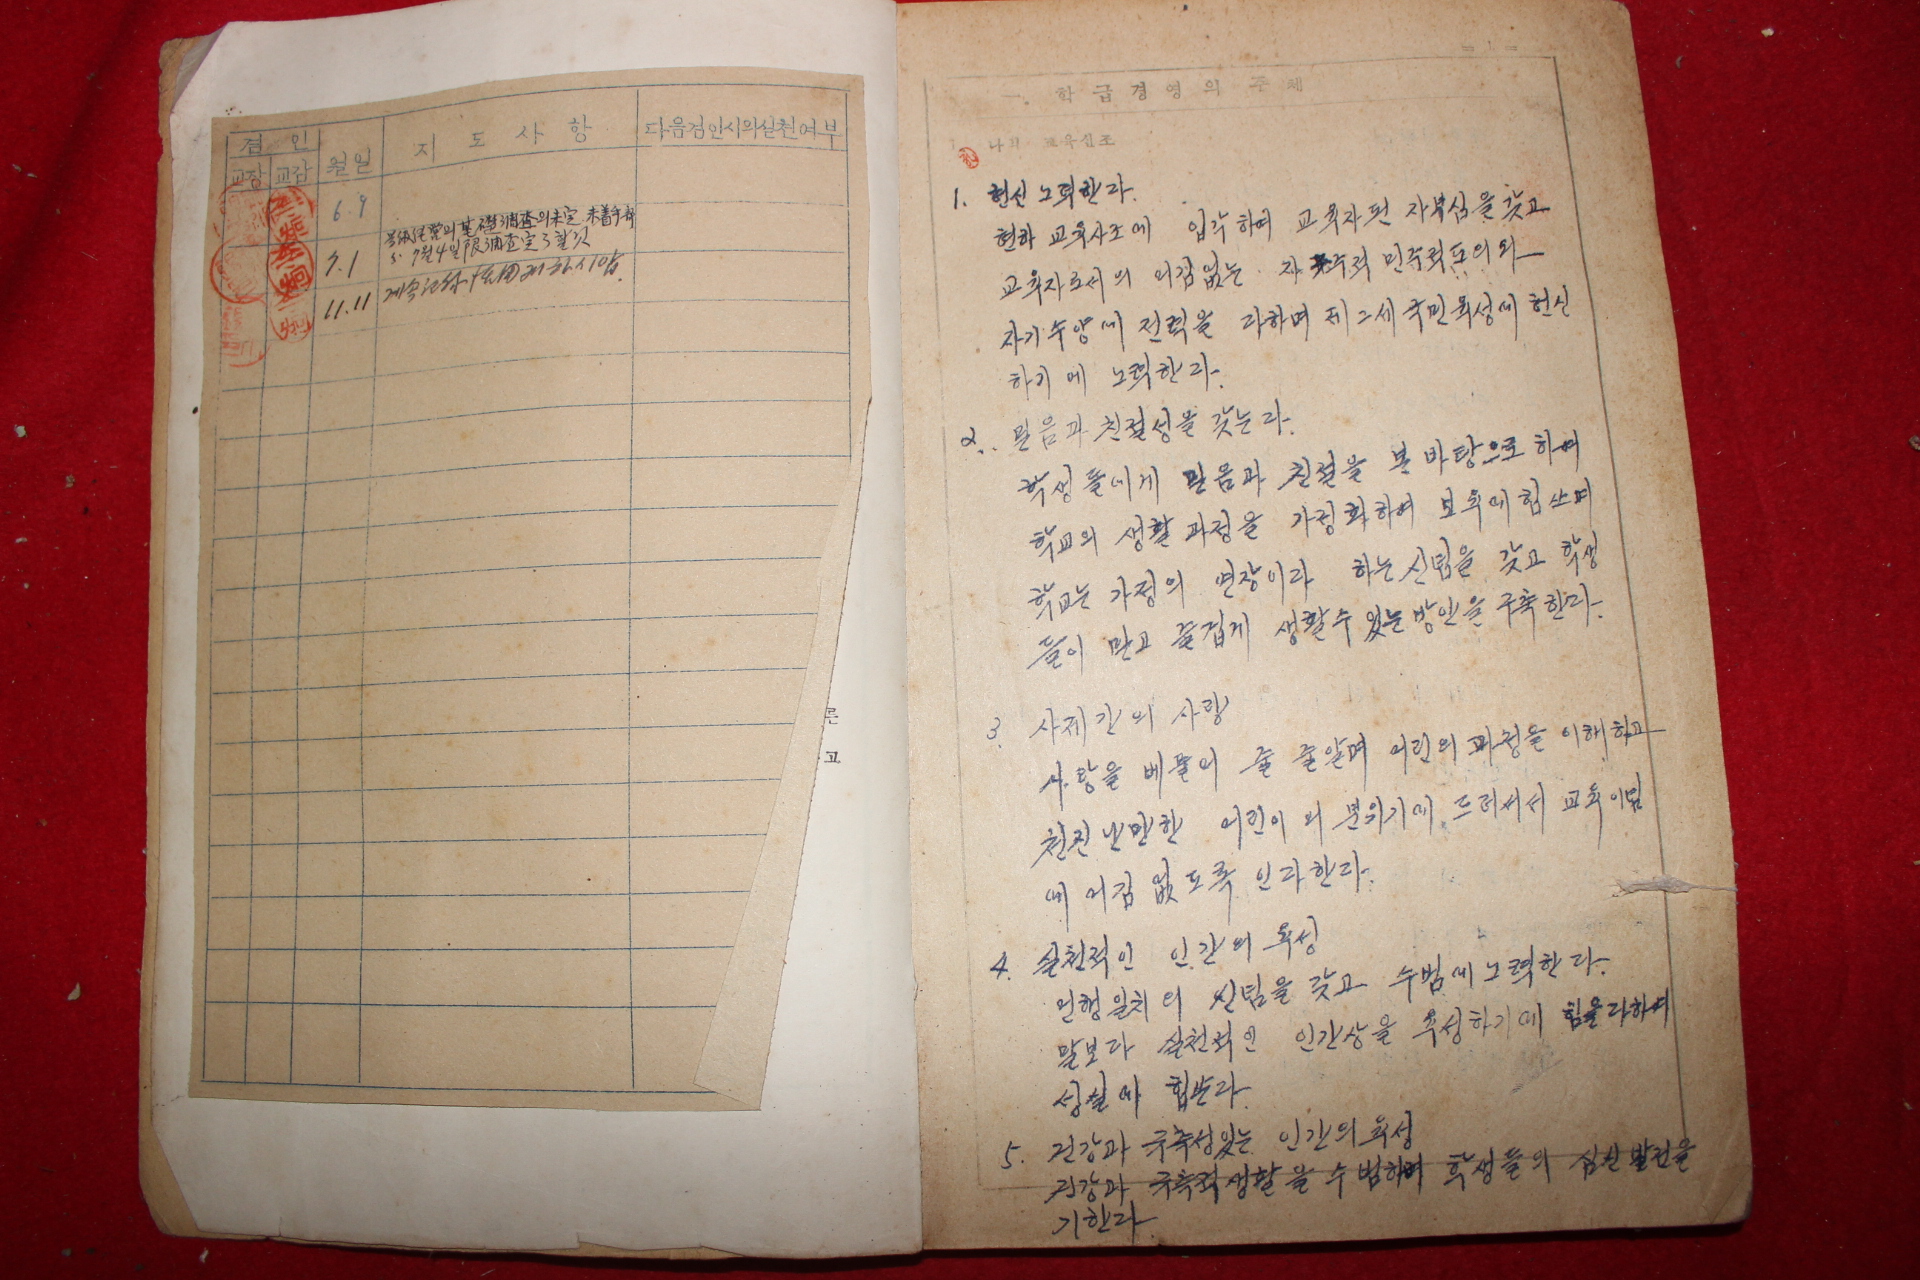 검인
지도사항
다음검인시의실천여부
교장 교감 월일
6.9
学級経営의 基礎調査의 未完 未着手部
는 7월 4일限 調査完了할 것
7.1
11.11
른
고
= 1 =
一. 학급경영의 주체
나의 교육신조
1. 헌신 노력한다.
현하 교육사조에 입각하여 교육자된 자부심을 갖고
교육자로서의 어김없는 자주적 민주적 도의와
자기수양에 전력을 다하며 제二세 국민육성에 헌신
하기에 노력한다.
2. 믿음과 친절성을 갖는다.
학생들에게 믿음과 친절을 본바탕으로 하여
학교의 생활과정을 가정화하여 보육에 힘쓰며
학교는 가정의 연장이라 하는 신념을 갖고 학생
들이 믿고 즐겁게 생활할수 있는 방안을 구축한다.
3. 사제간의 사랑
사랑을 베풀어 줄 줄알며 어린의 과정을 이해하고
천진난만한 어린이의 분위기에 드러서서 교육이념
에 어김없도록 인다한다.
4. 실천적인 인간의 육성
언행일치의 신념을 갖고 수범에 노력한다.
말보다 실천적인 인간상을 육성하기에 힘을다하여
성실에 힘쓴다.
5. 건강과 규측성있는 인간의 육성
건강과 규측적 생활을 수범하여 학생들의 심신발전을
기한다.